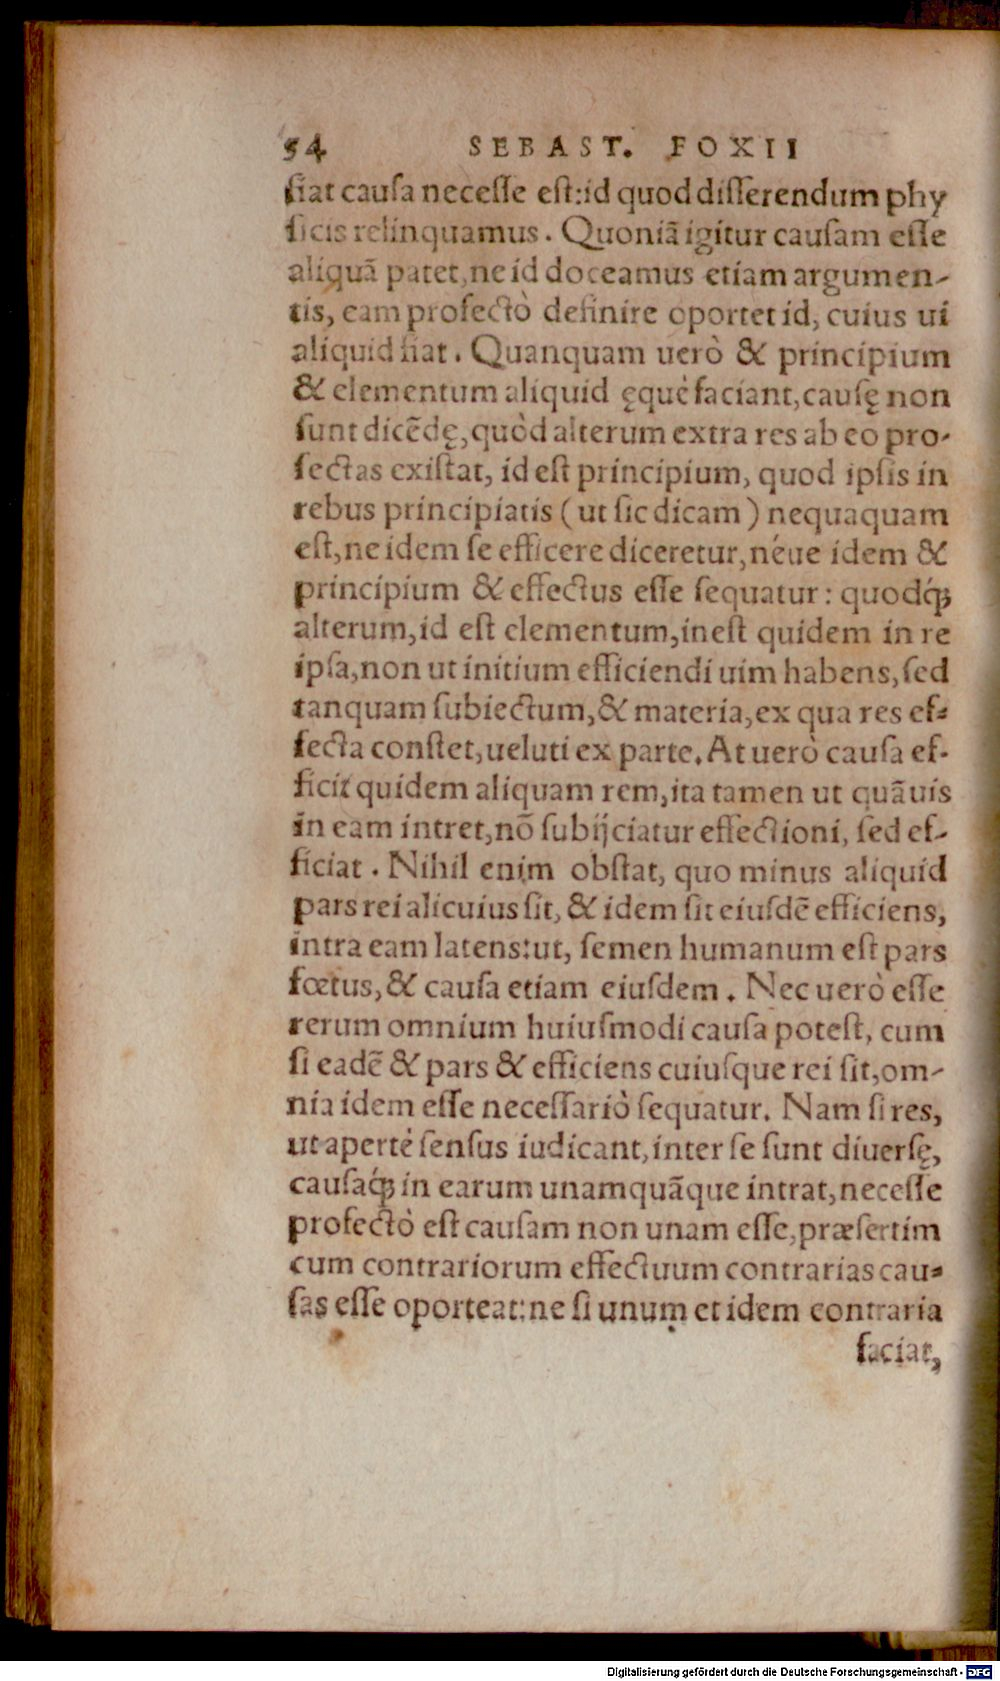 54 SEBAST. FOXII
fiat cauſa neceſſe eſt:id quod diſſerendum phy
ſicis relinquamus. Quoniã igitur cauſam eſſe
aliquã patet,ne id doceamus etiam argumen-
tis, eam profectò definire oportet id, cuius ui
aliquid fiat. Quanquam uerò & principium
& elementum aliquid ęquè faciant,cauſę non
ſunt dicẽdę,quòd alterum extra res ab eo pro-
fectas exiſtat, id eſt principium, quod ipſis in
rebus principiatis (ut ſic dicam) nequaquam
eſt,ne idem ſe efficere diceretur,néue idem &
principium & effectus eſſe ſequatur: quodq́;
alterum,id eſt elementum,ineſt quidem in re
ipſa,non ut initium efficiendi uim habens,ſed
tanquam ſubiectum,& materia,ex qua res ef-
fecta conſtet,ueluti ex parte. At uerò cauſa ef-
ficit quidem aliquam rem,ita tamen ut quãuis
in eam intret,nõ ſubijciatur effectioni, ſed ef-
ficiat. Nihil enim obſtat, quo minus aliquid
pars rei alicuius ſit, & idem ſit eiuſdẽ efficiens,
intra eam latens:ut, ſemen humanum eſt pars
fœtus,& cauſa etiam eiuſdem. Nec uerò eſſe
rerum omnium huiuſmodi cauſa poteſt, cum
ſi eadẽ & pars & efficiens cuiuſque rei ſit,om-
nia idem eſſe neceſſariò ſequatur. Nam ſi res,
ut apertè ſenſus iudicant,inter ſe ſunt diuerſę,
cauſaq́; in earum unamquãque intrat,neceſſe
profectò eſt cauſam non unam eſſe,præſertim
cum contrariorum effectuum contrarias cau-
ſas eſſe oporteat:ne ſi unum et idem contraria
faciat,
Digitalisierung gefördert durch die Deutsche Forschungsgemeinschaft - DFG